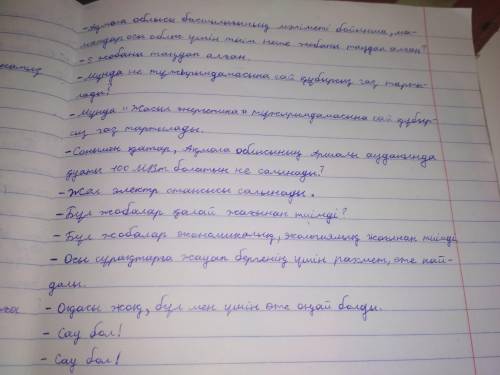 - Ақмола облысы басшылығының мәліметі бойынша, ма-
мандар осы облыс үшін тиімді неше жобаны таңдап алған?
- 5 жобаны таңдап алған.
- Мұнда не тұжырымдамасына сай құбырсыз газ тарты-
лады?
- Мұнда "Жасыл энергетика" тұжырымдамасына сай құбыр-
сыз газ тартылады.
- Сонымен қатар, Ақмола облысының Аршалы ауданында
қуаты 100 МВт болатын не салынады?
- Жел электр стансысы салынады.
- Бұл жобалар қалай жағынан тиімді?
- Бұл жобалар экономикалық, экологиялық жағынан тиімді
- Осы сұрақтарға жауап бергенің үшін рахмет, өте пай-
далы.
- Оқасы жоқ, бұл мен үшін өте оңай болды.
- Сау бол!
- Сау бол!